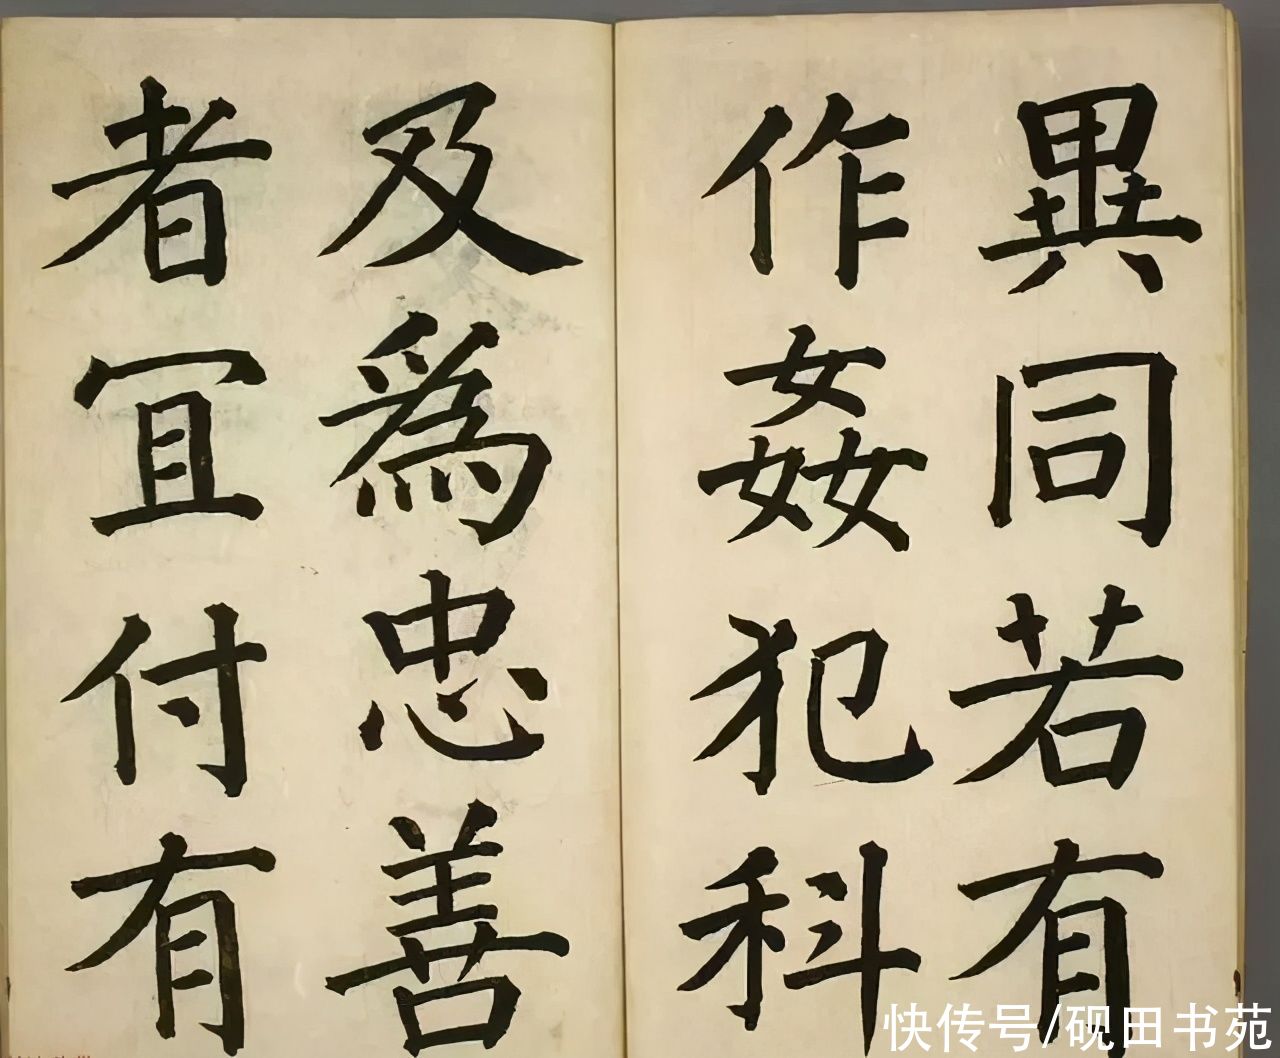 異同若有
作姦犯科
及為忠善
者冝付有
快传号/砚田书苑